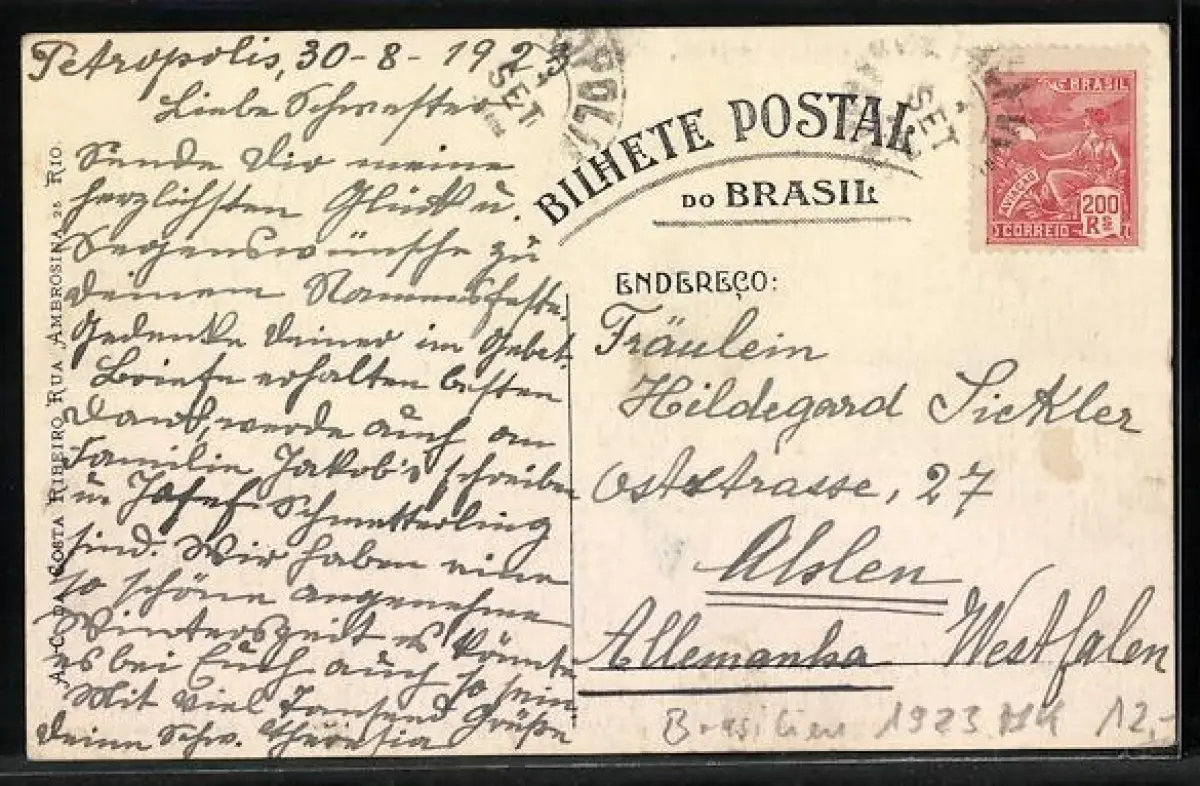 Petropolis, 30-8-1923
Liebe Schwester
Sende Dir meine
herzlichsten Glück u.
Segenswünsche zu
Deinem Namensfeste.
Gedenke Deiner im Gebet.
Briefe erhalten besten
Dank, werde auch an
Familie Jakob's schreiben
u. Josef Schmetterling
sind. Wir haben eine
so schöne angenehme
Winterszeit es könnte
es bei Euch auch so sein
Mit viel Tausend Grüße
Deine Schw. Theresia
A. C. DA COSTA RIBEIRO RUA AMBROSINA 25 RIO.
SET
POLI
SET
BILHETE POSTAL
DO BRASIL
BRASIL
AVIAÇÃO
200
RS
CORREIO
ENDEREÇO:
Fräulein
Hildegard Sickler
Oststrasse, 27
Ahlen
Allemanha Westfalen
Brasilien 1923 12,-